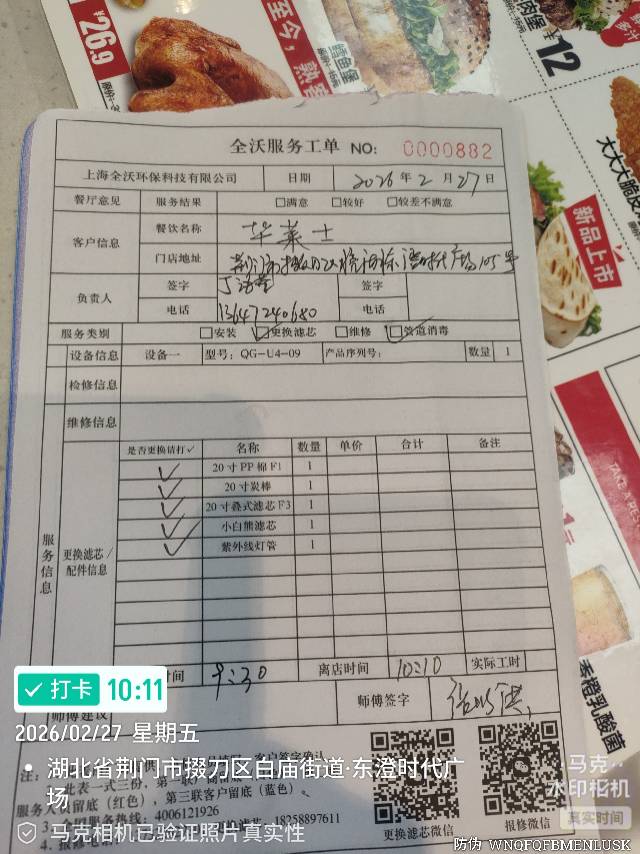 26.9
至今，熟客
鳕鱼堡
肉堡
¥12
多汁
大大大脆皮
新品上市
TAKE A RES
香橙乳酸菌
全沃服务工单 NO: 0000882
上海全沃环保科技有限公司 日期 2026 年 2 月 27 日
餐厅意见 服务结果 □满意 □较好 □较差不满意
客户信息 餐饮名称 华莱士
门店地址 105号
负责人 签字 签字
电话 13647240680 电话
服务类别 □安装 ☑更换滤芯 □维修 ☑管道消毒
设备信息 设备一 型号：QG-U4-09 产品序列号： 数量 1
检修信息
维修信息
服务信息
更换滤芯/配件信息
是否更换请打✓ 名称 数量 单价 合计 备注
✓ 20寸PP棉F1 1
✓ 20寸炭棒 1
✓ 20寸叠式滤芯F3 1
✓ 小白熊滤芯 1
✓ 紫外线灯管 1
时间 9:30 离店时间 10:10 实际工时
师傅建议 师傅签字
注：
客户签字确认
此表一式三份，第一联
留底（红色），第三联客户留底（蓝色）。
服务热线：4006121926
18258897611
更换滤芯微信
报修微信
打卡 10:11
2026/02/27 星期五
湖北省荆门市掇刀区白庙街道·东澄时代广场
马克相机已验证照片真实性
马克
水印相机
真实时间
防伪 WNQFQFBMENLUSK